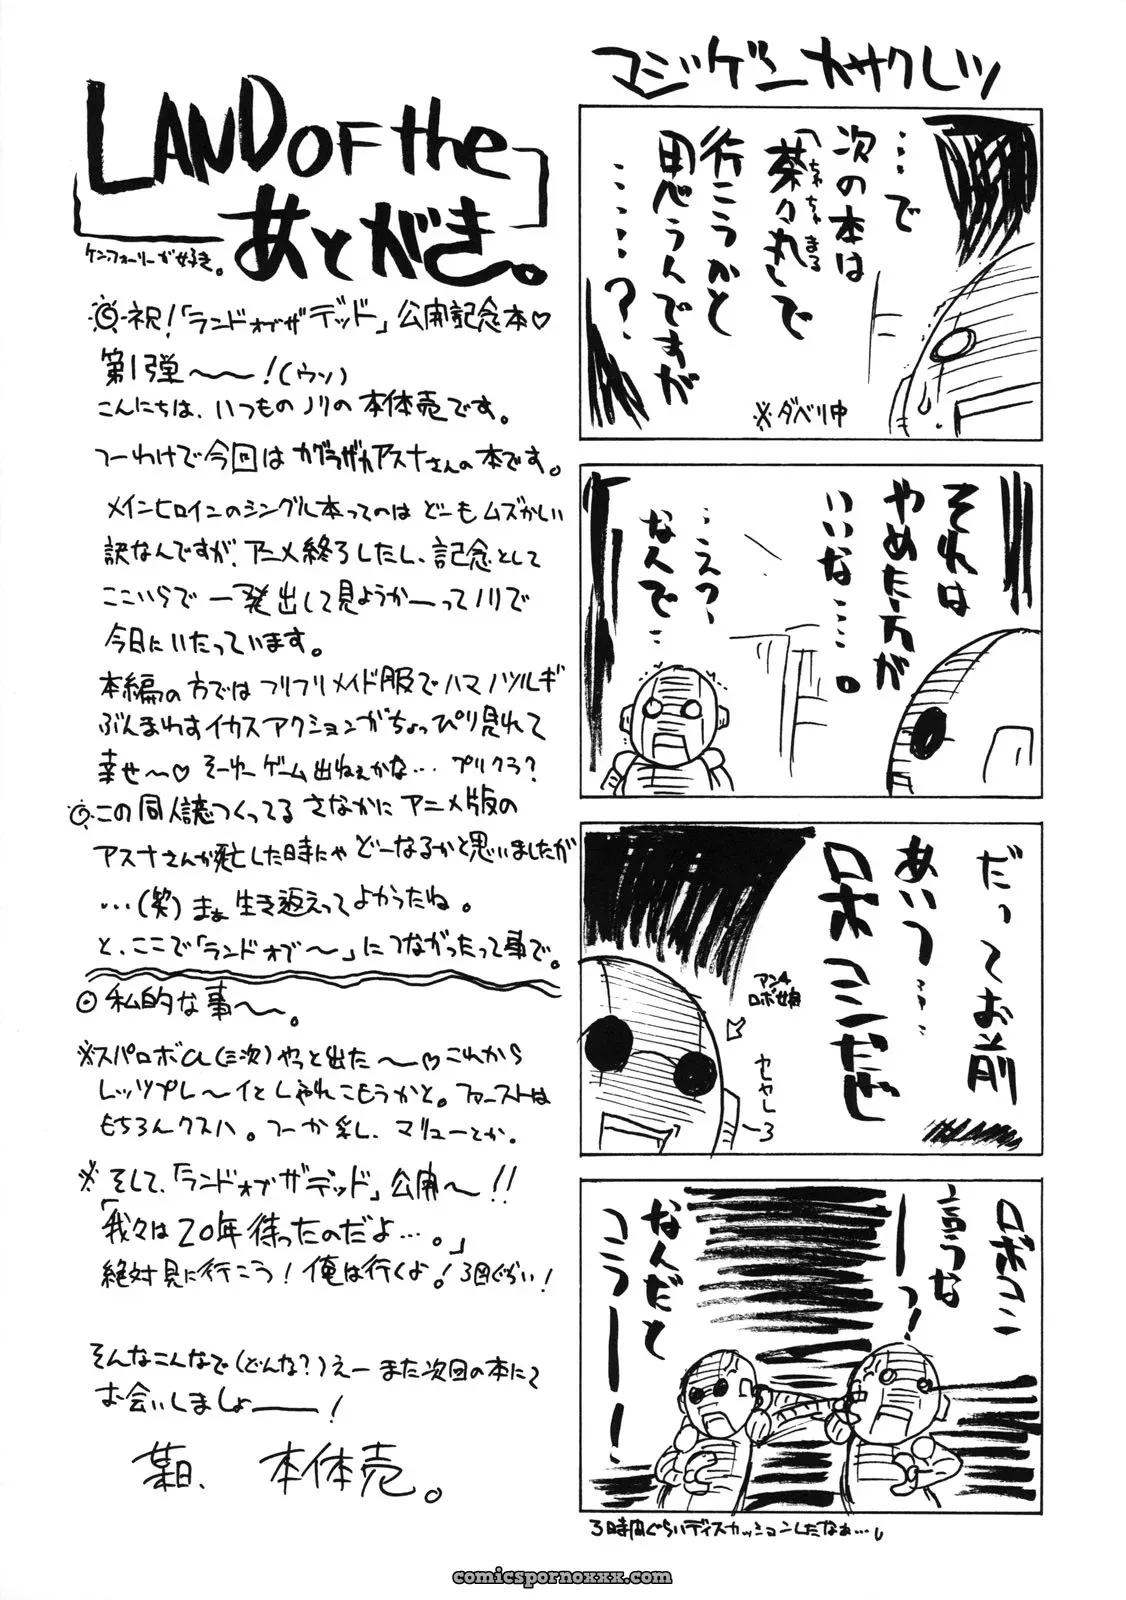 LAND OF the
あとがき。
ケンフォーリーが好き。
◎祝!「ランドオブザデッド」公開記念本♡
第1弾〜〜!(ウソ)
こんにちは、いつものノリの本体売です。
つーわけで今回はカグラザカアスナさんの本です。
メインヒロインのシングル本ってのはどーもムズかしい
訳なんですが、アニメ終了したし、記念として
ここいらで一発出して見ようかーってノリで
今日にいたっています。
本編の方ではフリフリメイド服でハマノツルギ
ぶんまわすイカスアクションがちょっぴり見れて
幸せ〜♡そーゆーゲーム出ねぇかな…プリクラ?
◎この同人誌つくってるさなかにアニメ版の
アスナさんが死亡した時にゃどーなるかと思いましたが
…(笑)まぁ生き返えってよかったね。
と、ここで「ランドオブ〜」につながったって事で。
◎私的な事〜〜。
※スパロボα(三次)やっと出た〜〜♡これから
レッツプレ〜イとしゃれこもうかと。ファーストは
もちろんクスハ。つーか乳、マリューとか。
※そして、「ランドオブザデッド」公開〜!!
「我々は20年待ったのだよ…。」
絶対見に行こう!俺は行くよ!3回ぐらい!
そんなこんなで(どんな?)えーまた次回の本にて
お会いしましょーー!
某日、本体売。
マジゲンカサクレツ
…で
次の本は
「茶々丸」で
ちゃちゃまる
行こうかと
思うんですが
……?
※ダベリ中
それは
やめた方が
いいな…。
…えっ、
なんで…
だってお前
あいつ…
ロボコンだぜ
アンチ
ロボ娘
ロボコン
言うな
ーーっ!
なんだと
コラーーー!
3時間ぐらいディスカッションしたなぁ…。
comicspornoxxx.com